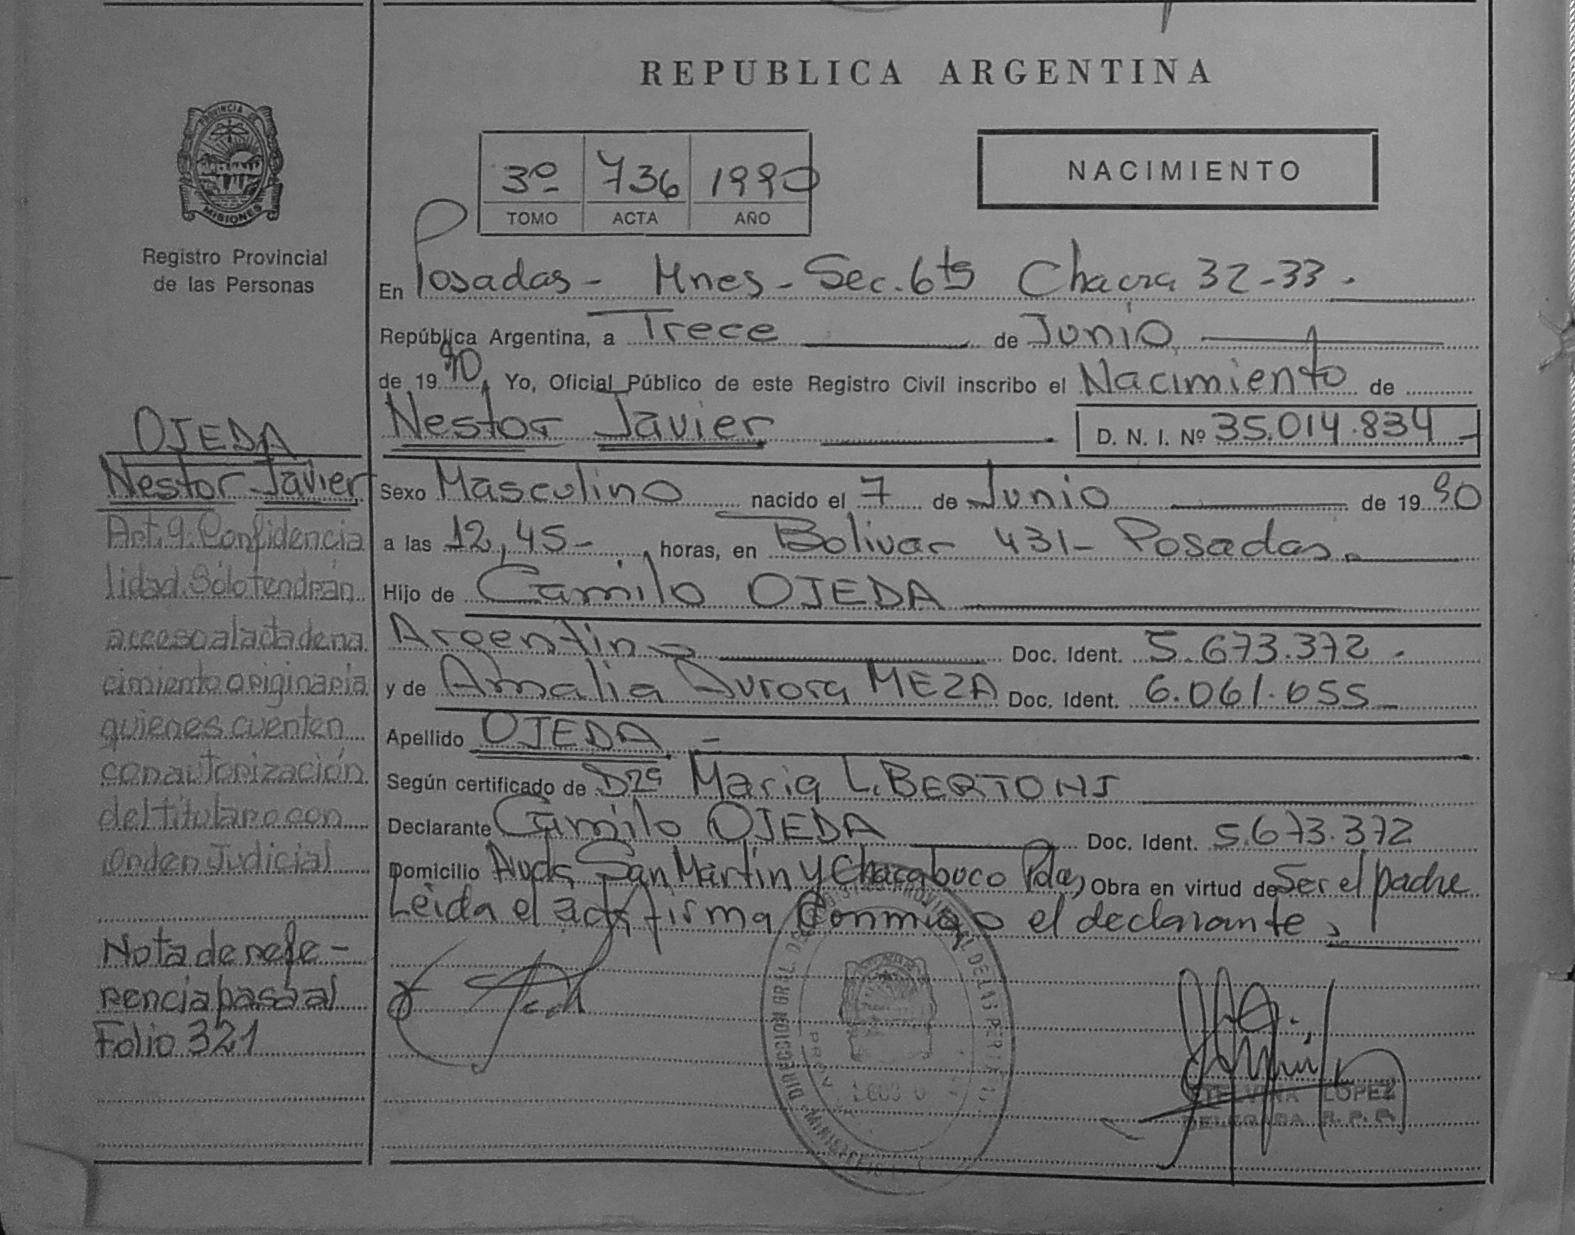 REPUBLICA ARGENTINA
PROVINCIA DE
MISIONES
Registro Provincial
de las Personas
3º 736 1990
TOMO ACTA AÑO
NACIMIENTO
En Posadas - Mnes - Sec. 6ta Chacra 32-33 -
República Argentina, a Trece de Junio
de 19 90, Yo, Oficial Público de este Registro Civil inscribo el Nacimiento de
Nestor Javier D. N. I. Nº 35.014.834
Sexo Masculino nacido el 7 de Junio de 19 90
a las 12,45 - horas, en Bolivar 431 - Posadas
Hijo de Camilo OJEDA
Argentino Doc. Ident. 5.673.372 -
y de Amalia Aurora MEZA Doc. Ident. 6.061.655
Apellido OJEDA -
Según certificado de Dra Maria L. BERTONI
Declarante Camilo OJEDA Doc. Ident. 5.673.372
Domicilio Avda San Martin y Chacabuco Pdas, Obra en virtud de Ser el padre
Leida el acta firma Conmigo el declarante
OJEDA
Nestor Javier
Art. 9. Confidencia
lidad. Sólo tendrán
acceso al acta de na
cimiento originaria
quienes cuenten
con autorización
del titular o con
orden Judicial
Nota de refe -
rencia pasa al
Folio 321
DIRECCION GRAL. DE
LOPEZ
DELEGADA R. P. P.